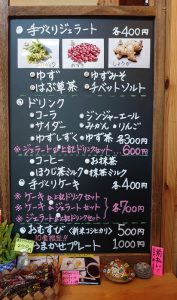 手づくりジェラート 各400円
ゆず ゆずみそ
はぶ草茶 チベットソルト
ドリンク
コーラ ジンジャーエール
サイダー みかん・りんご
ゆずしずく ゆず茶 各300円
※ジェラートと上記ドリンクセット 600円
コーヒー お抹茶
ほうじ茶ミルク 抹茶ミルク
手づくりケーキ 各400円
※ケーキと上記ドリンクセット
※ケーキとジェラートセット 各700円
※ジェラートと上記ドリンクセット
おむすび(新米コシヒカリ) 500円
うまかセプレート 1,000円